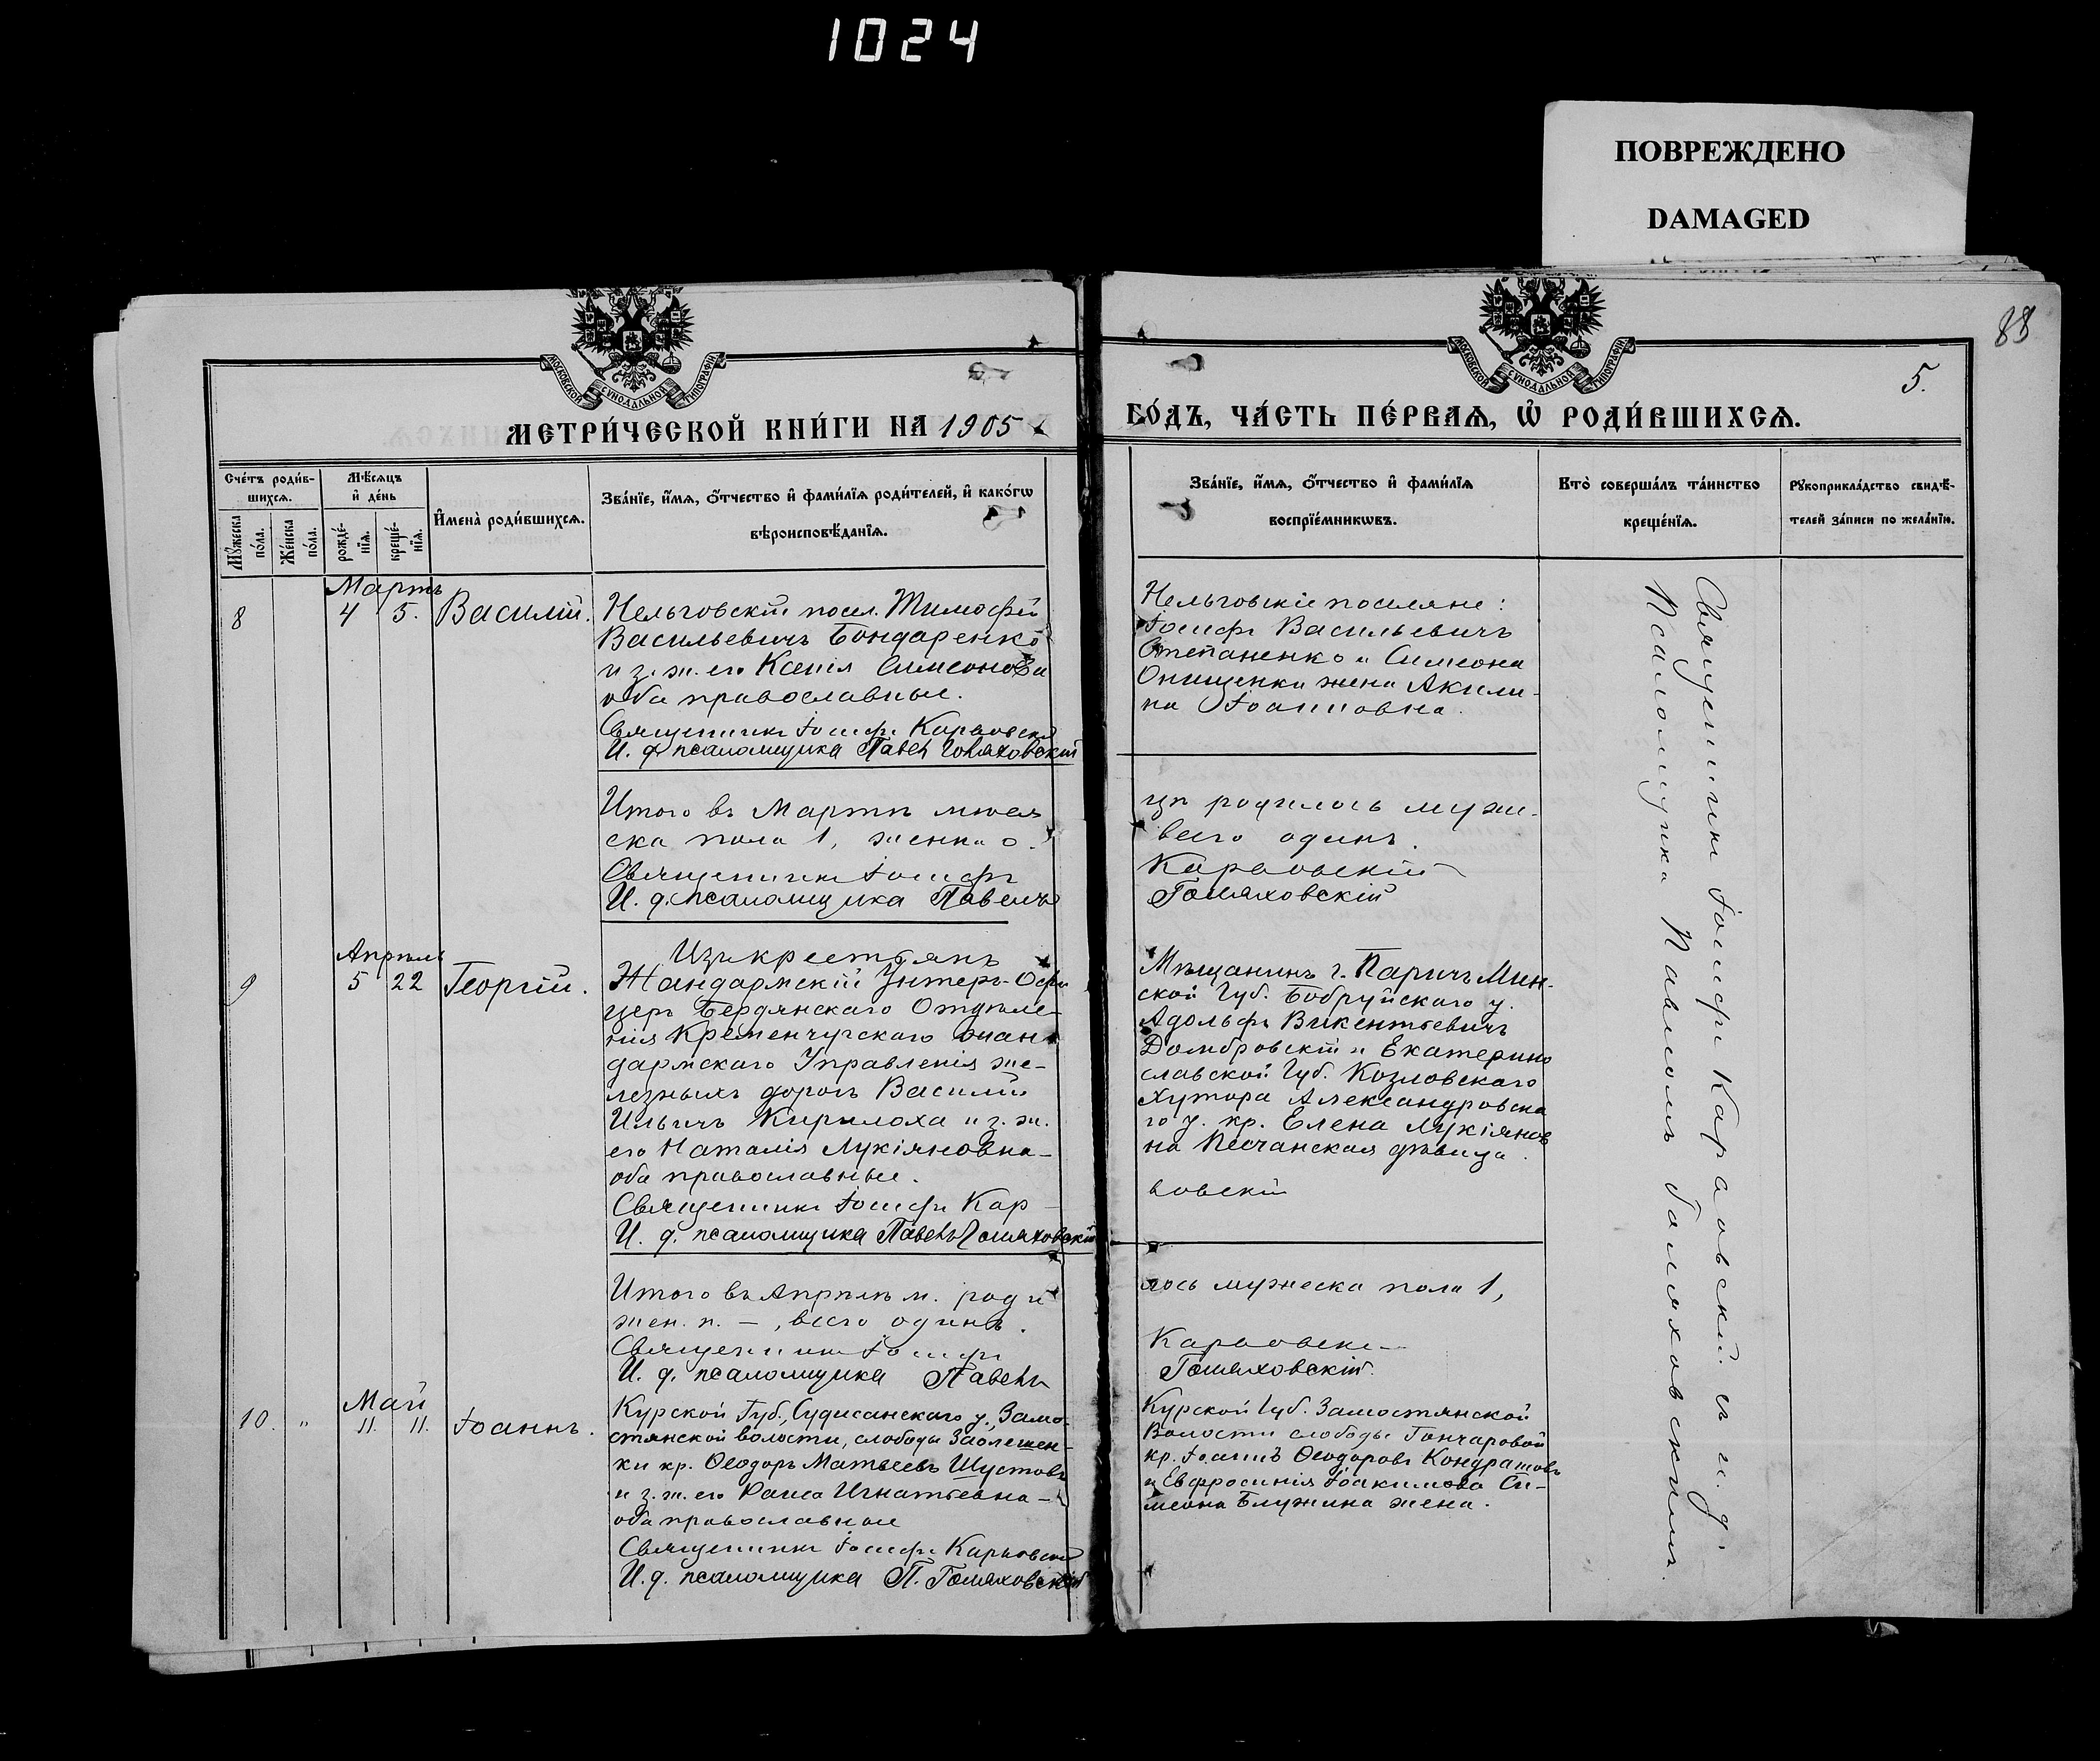 1024
ПОВРЕЖДЕНО
DAMAGED
88
5.
МОСКОВСКОЙ СѴНОДАЛЬНОЙ ТИПОГРАФІИ
МОСКОВСКОЙ СѴНОДАЛЬНОЙ ТИПОГРАФІИ
МЕТРИ́ЧЕСКОЙ КНИ́ГИ НА 1905
ГО́ДЪ, ЧА́СТЬ ПЕ́РВАѦ, Ѡ҆ РОДИ́ВШИХСѦ.
Сче́тъ роди́в-
шихсѧ.
Мꙋ́жеска по́ла.
Же́нска по́ла.
Мѣ́сѧцъ
и҆ де́нь
рожде́-
нїѧ.
креще́-
нїѧ.
И҆мена̀ роди́вшихсѧ.
Зва́нїе, и҆́мѧ, ѻ҆́тчество и҆ фами́лїѧ роди́телей, и҆ како́гѡ
вѣроисповѣ́данїѧ.
Зва́нїе, и҆́мѧ, ѻ҆́тчество и҆ фами́лїѧ
воспрїе́мникѡвъ.
Кто̀ соверша́лъ та́инство
креще́нїѧ.
Рꙋкоприкла́дство свидѣ́-
телей за́писи по жела́нїю.
Мартъ
8 4 5. Василій.
Нельговскій посел. Тимофій
Васильевичъ Бондаренко
и з. ж. его Ксенія Симеонова
оба православные.
Священникъ Іосифъ Карповскій
И. д. псаломщика Павелъ Гомяховскій
Нельговскіе поселяне:
Іосифъ Васильевичъ
Степаненко и Симеона
Онищенки жена Акили-
на Іоанновна.
Итого въ Мартѣ мѣся
ска пола 1, женска 0.
Священникъ Іосифъ
И. д. псаломщика Павелъ
цѣ родилось муже-
всего одинъ.
Карповскій
Гомяховскій
Апрѣль
9 5 22 Георгій.
Изъ крестьянъ
Жандармскій Унтеръ-Офи
церъ Бердянскаго Отдѣле-
нія Кременчугскаго жан
дармскаго Управленія же-
лезныхъ дорогъ Василій
Ильичъ Кирилоха и з. ж.
его Наталія Лукіяновна-
оба православные.
Священникъ Іосифъ Кар-
И. д. псаломщика Павелъ Гомяховскій
Мѣщанинъ г. Паричъ Мин-
ской Губ. Бобруйскаго у.
Адольфъ Викентьевичъ
Домбровскій и Екатерино
славской Губ. Козловскаго
Хутора Александровска
го у. кр. Елена Лукіянов
на Песчанская дѣвица.
повскій
Итого въ Апрѣлѣ м. роди
жен. п. — , всего одинъ.
Священникъ Іосифъ
И. д. псаломщика Павелъ
лось мужеска пола 1,
Карповскій
Гомяховскій.
Май
10. " 11. 11. Іоаннъ.
Курской Губ., Суджанскаго у., Замо-
стянской волости, слободы Заолешен-
ки кр. Ѳеодоръ Матвеевъ Шустовъ
и з. ж. его Раиса Игнатьевна-
оба православные
Священникъ Іосифъ Карповскій
И. д. псаломщика П. Гомяховскій
Курской Губ. Замостянской
Волости слободы Гончаровой
кр. Іоаннъ Ѳеодоровъ Кондратовъ
и Евфросинія Іоакимова Си-
меона Блужина жена.
Священникъ Іосифъ Карповскій съ и. д.
Псаломщика Павломъ Гомяховскимъ.